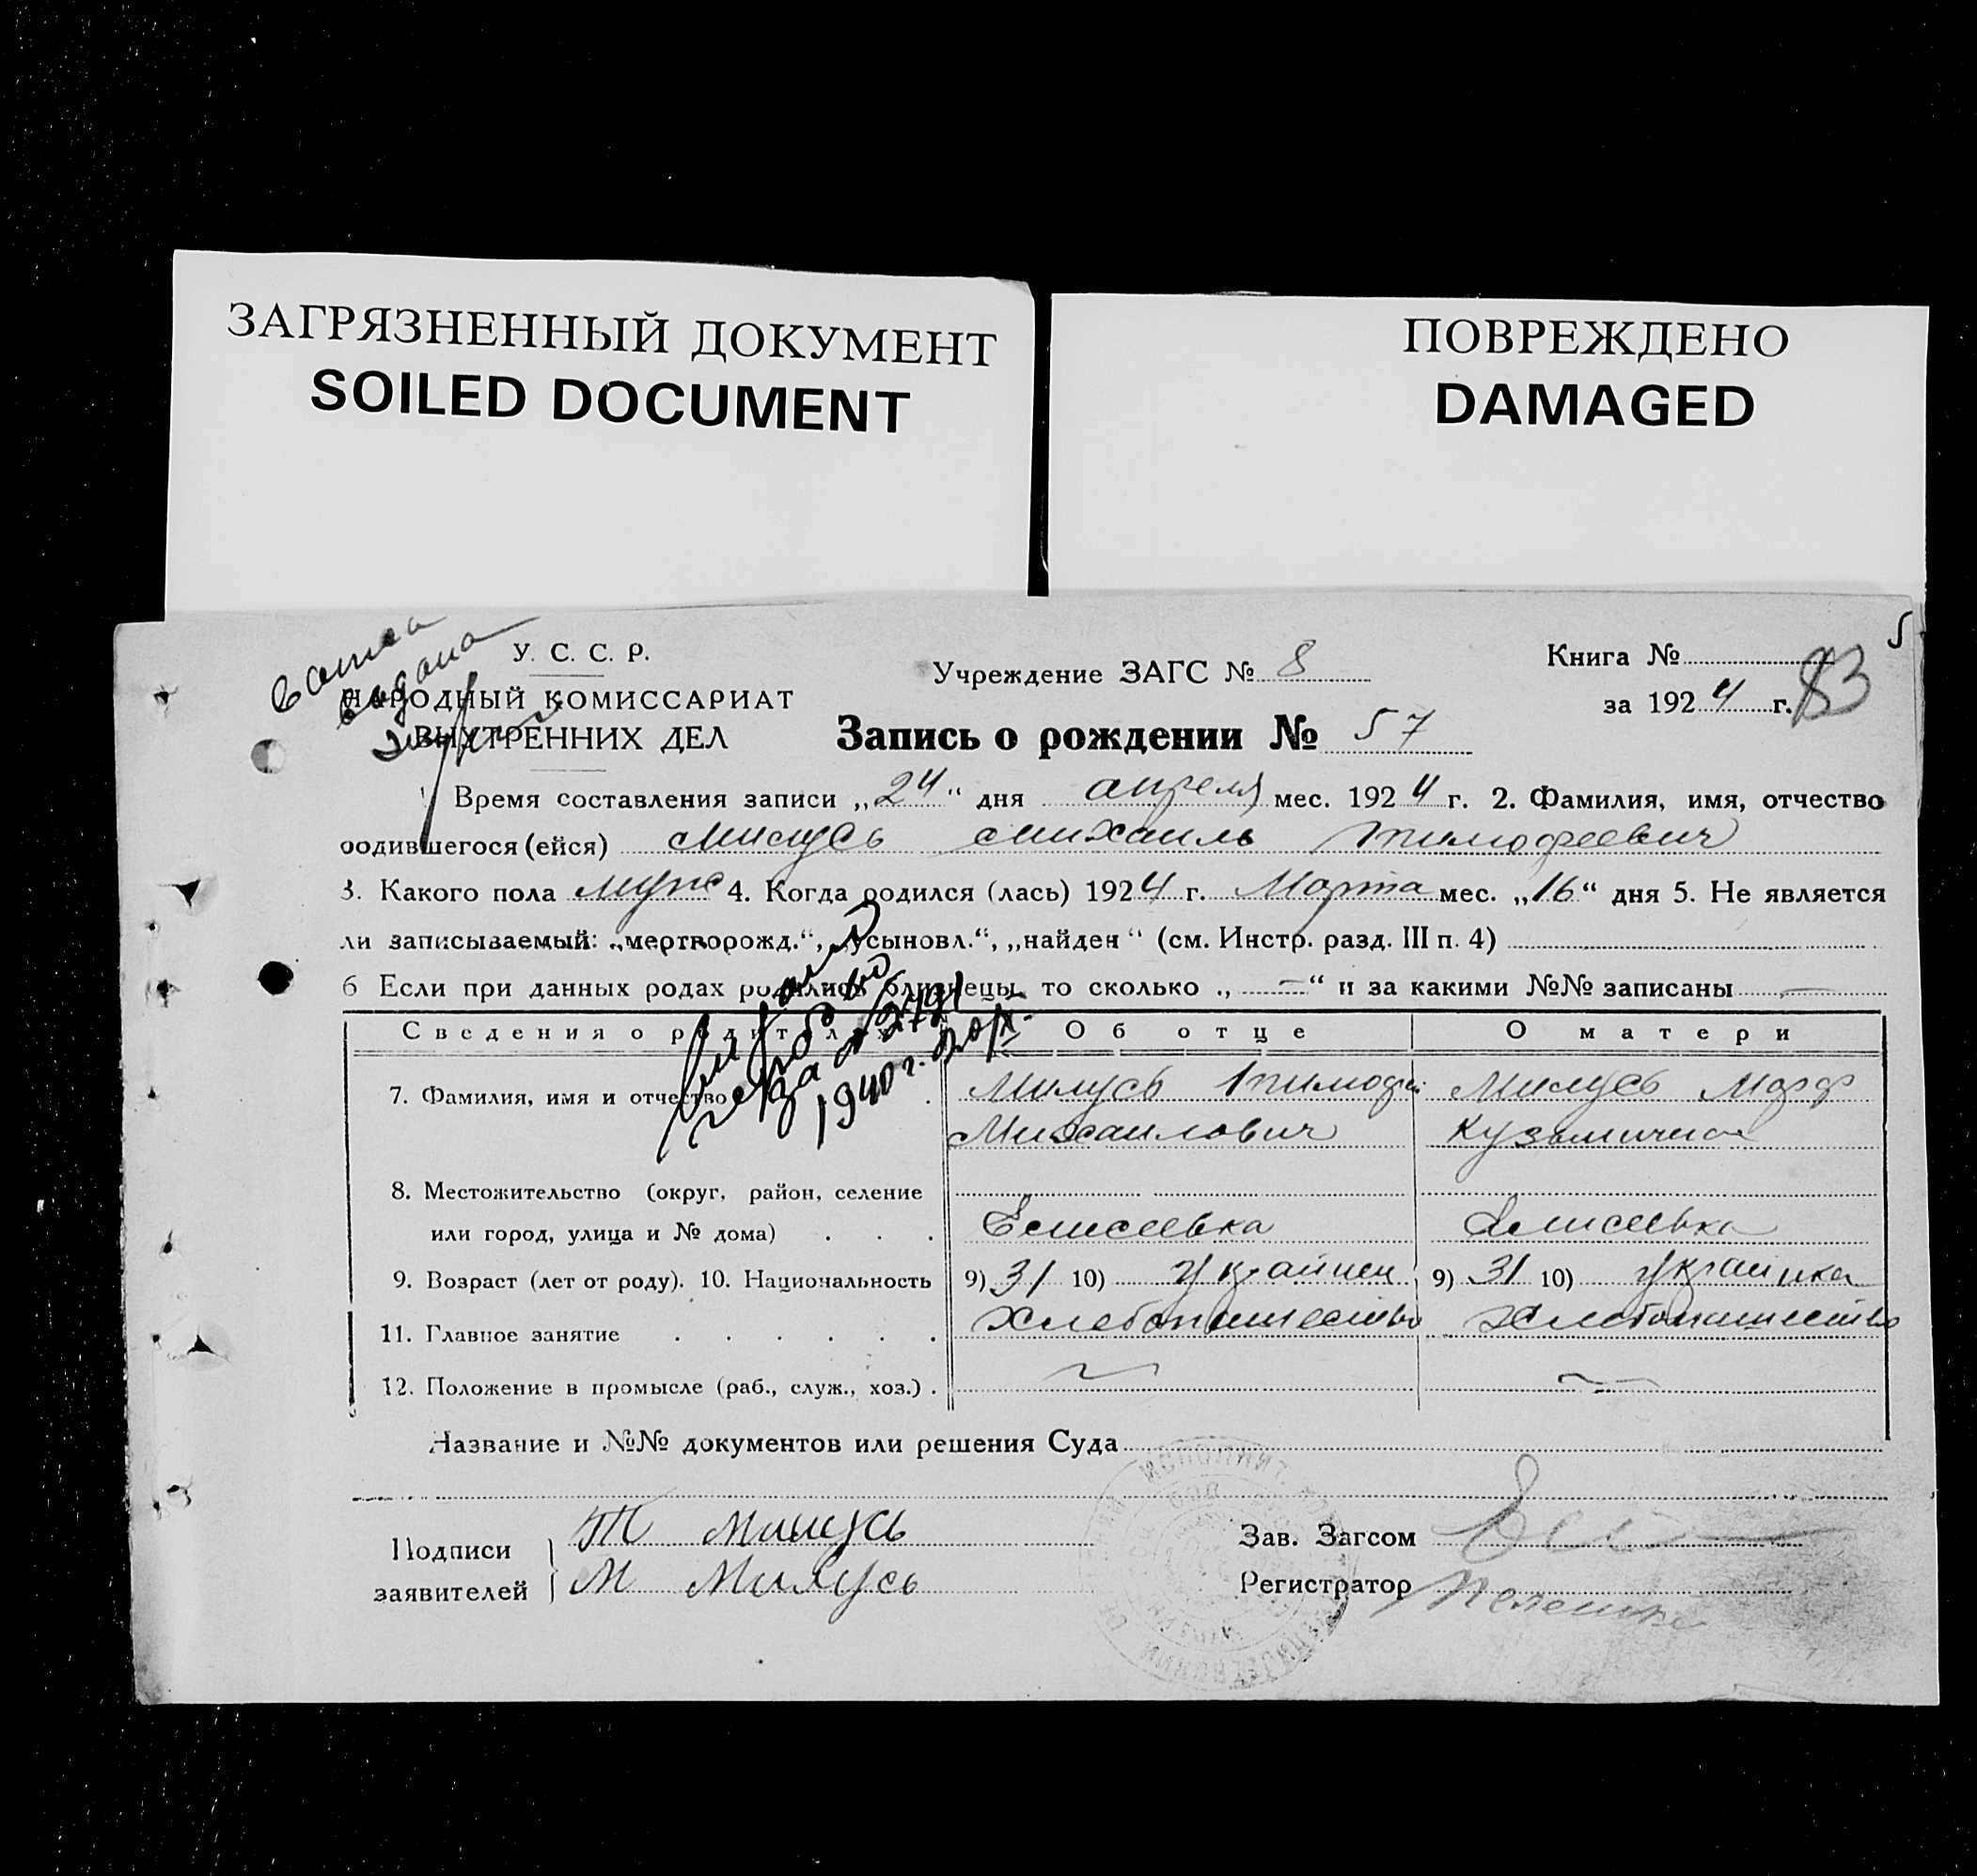 ЗАГРЯЗНЕННЫЙ ДОКУМЕНТ
SOILED DOCUMENT
ПОВРЕЖДЕНО
DAMAGED
5
У. С. С. Р.
НАРОДНЫЙ КОМИССАРИАТ
ВНУТРЕННИХ ДЕЛ
выдана
Учреждение ЗАГС № 8
Книга №
за 1924 г.
83
Запись о рождении № 57
Время составления записи „24“ дня апреля мес. 1924 г. 2. Фамилия, имя, отчество
родившегося (ейся) Милусь Михаиль Тимофеевич
3. Какого пола муж 4. Когда родился (лась) 1924 г. Марта мес. „16“ дня 5. Не является
ли записываемый: „мертворожд.“, „усыновл.“, „найден“ (см. Инстр. разд. III п. 4)
6 Если при данных родах родились близнецы, то сколько „ — “ и за какими №№ записаны —
Сведения о родителях Об отце О матери
7. Фамилия, имя и отчество Милусь Тимофей Милусь Марф
Михаилович Кузьминична
8. Местожительство (округ, район, селение
или город, улица и № дома) Елисеевка Елисеевка
9. Возраст (лет от роду). 10. Национальность 9) 31 10) Украинец 9) 31 10) Украинка
11. Главное занятие Хлебопашество Хлебопашество
12. Положение в промысле (раб., служ., хоз.)
за
1940 г.
Название и №№ документов или решения Суда
Подписи заявителей
Т Милусь
М Милусь
Зав. Загсом
Регистратор